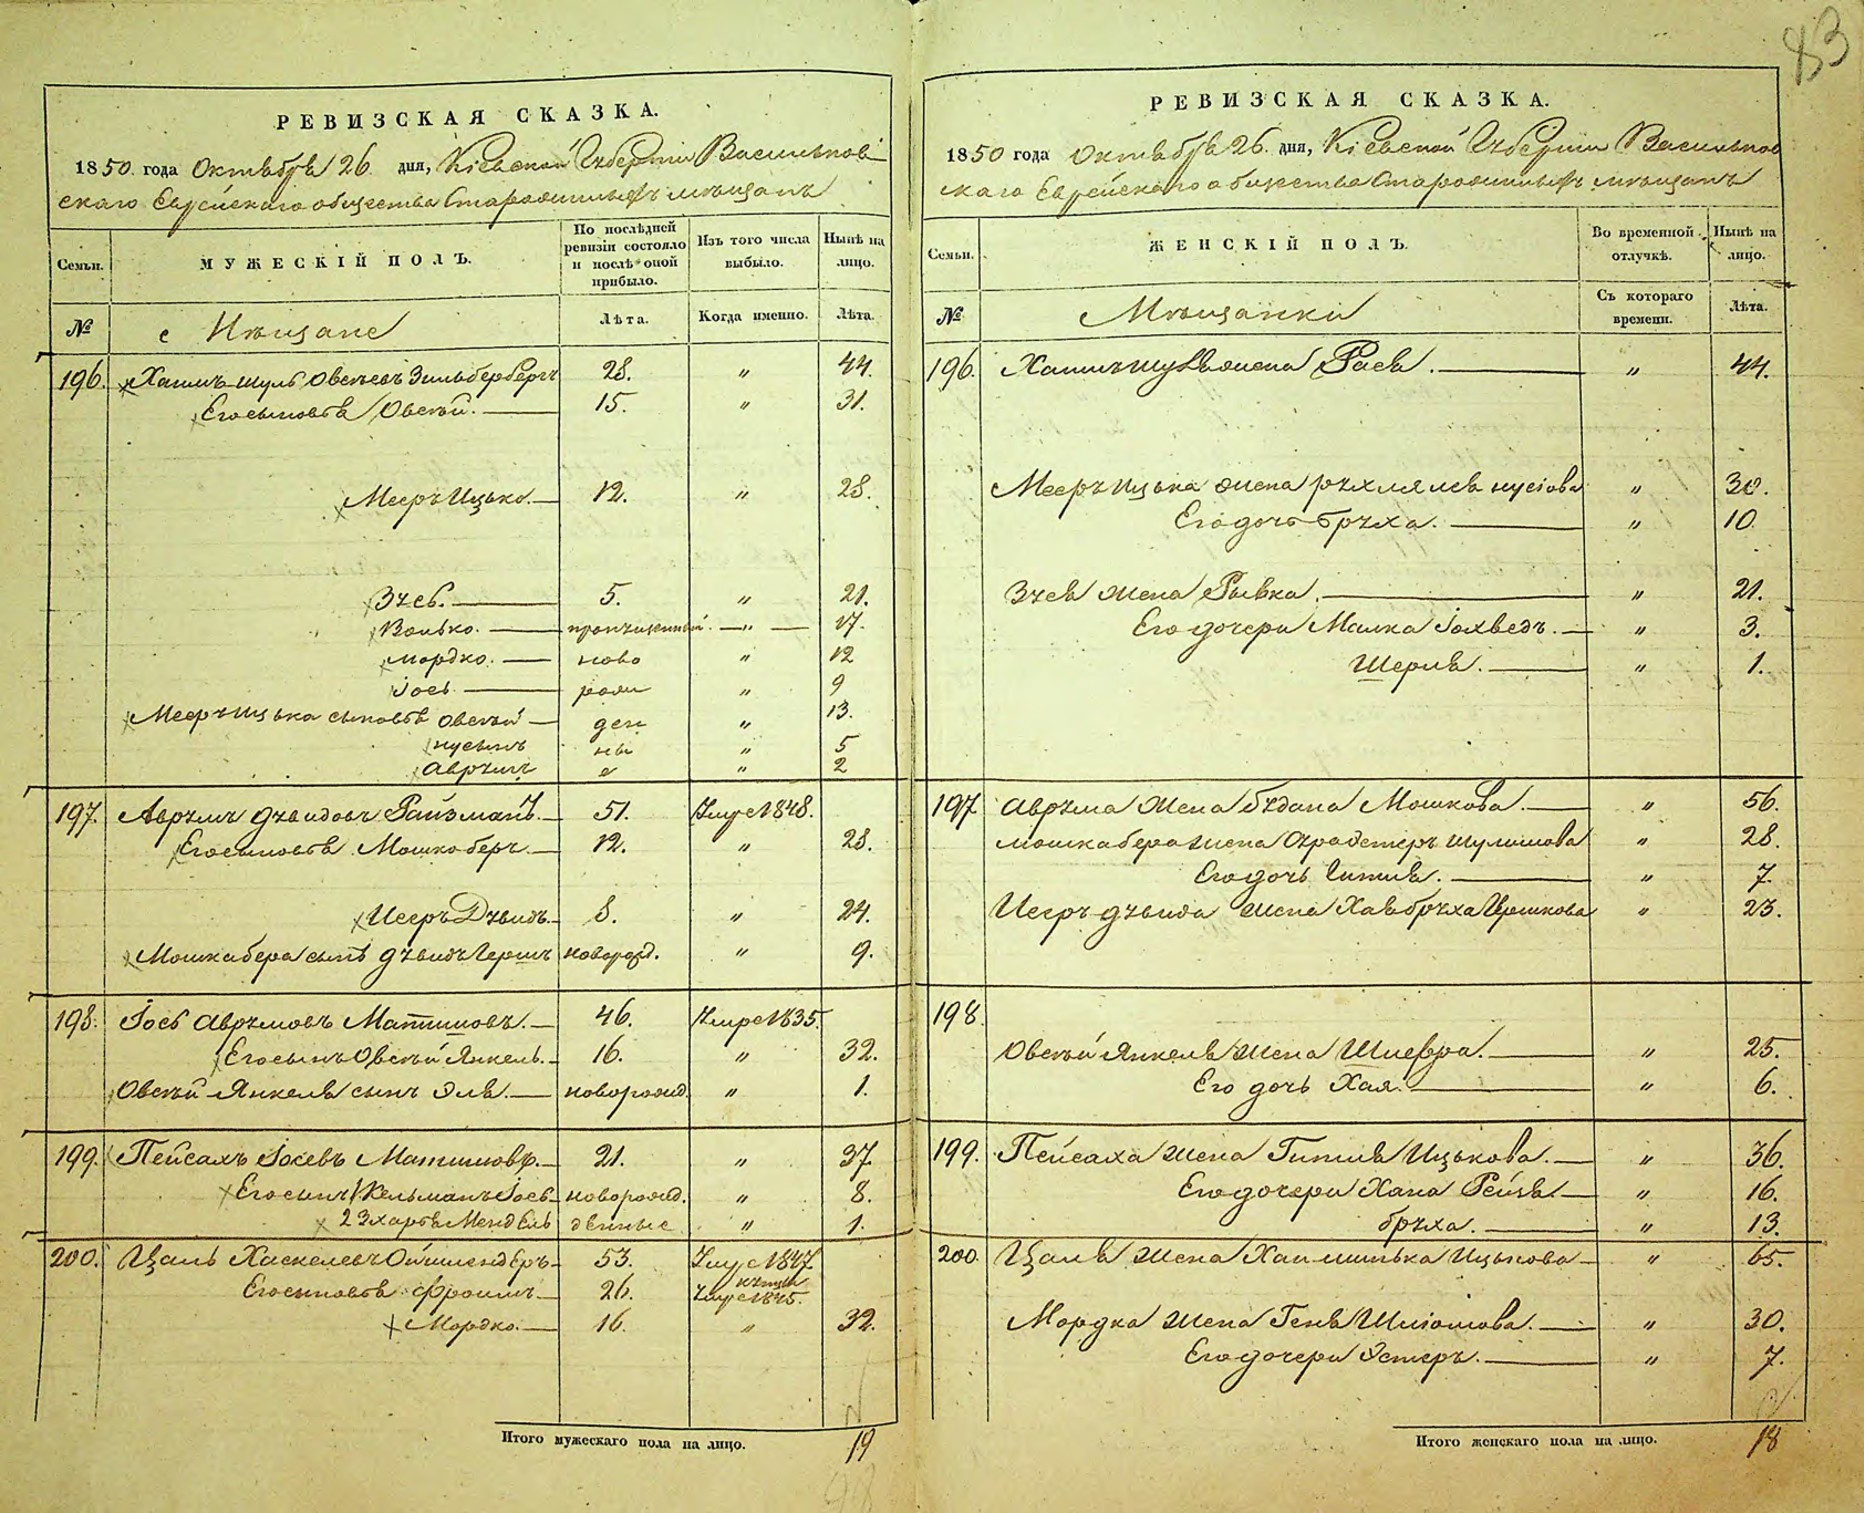 83
РЕВИЗСКАЯ СКАЗКА.
1850 года Октября 26 дня, Кіевской Губерніи Васильков-
скаго Еврейскаго общества Старожилыхъ мѣщанъ
Семьи.
МУЖЕСКІЙ ПОЛЪ.
По послѣдней ревизіи состояло и послѣ оной прибыло.
Изъ того числа выбыло.
Нынѣ на лицо.
№
Мѣщане
Лѣта.
Когда именно.
Лѣта.
196. Хаимъ-шуль Овсѣевъ Зильбербергъ 28. " 44.
Его сыновья Овсѣй. 15. " 31.
Мееръ Ицько. 12. " 28.
Зусь. 5. " 21.
Волько. пропущенный. " 17.
Мордко. ново " 12
Іось рож " 9
Мееръ Ицька сыновья Овсѣй ден " 13.
Нусынъ ны " 5
Аврумъ е " 2
197. Аврумъ Дувидовъ Райзманъ. 51. Умре 1848.
Его сыновья Мошко беръ. 12. " 28.
Исеръ Дувидъ. 8. " 24.
Мошка бера сынъ Дувидъ Гершъ новорожд. " 9.
198. Іось Аврумовъ Матишовъ. 46. Умре 1835.
Его сынъ Овсѣй Янкель. 16. " 32.
Овсѣй Янкеля сынъ Эля. новорожд. " 1.
199. Пейсахъ Іосевъ Матишовъ. 21. " 37.
Его сынъ Кельманъ Іось новорожд. " 8.
2 Зхарья Мендель денные " 1.
200. Цаль Хаскелевъ Ойшлендеръ 53. Умре 1847
Его сыновья Фроимъ 26. Умре 1845.
Мордко. 16. " 32.
Итого мужескаго пола на лицо. 19
РЕВИЗСКАЯ СКАЗКА.
1850 года Октября 26 дня, Кіевской Губерніи Васильков
скаго Еврейскаго общества Старожилыхъ мѣщанъ
Семьи.
ЖЕНСКІЙ ПОЛЪ.
Во временной отлучкѣ.
Нынѣ на лицо.
№
Мѣщанки
Съ котораго времени.
Лѣта.
196. Хаимъ шуля жена Рася. " 44.
Мееръ Ицька жена Рухля Лея Нусіова " 30.
Его дочь Бруха. " 10.
Зуся жена Рывка. " 21.
Его дочери Малка Іохведъ. " 3.
Шерля. " 1.
197 Аврума жена Бѣдана Мошкова. " 56.
Мошка бера жена Фрад Стеръ Шулимова " 28.
Его дочь Гитля. " 7.
Исеръ Дувида жена Хая бруха Гершкова " 23.
198.
Овсѣй Янкеля жена Шлефра. " 25.
Его дочь Хая. " 6.
199. Пейсаха жена Гитля Ицькова. " 36.
Его дочери Хана Рейзя. " 16.
Бруха. " 13.
200. Цаля жена Хаи-минька Ицькова " 65.
Мордка жена Геня Шліомова. " 30.
Его дочери Эстеръ. " 7.
Итого женскаго пола на лицо. 18